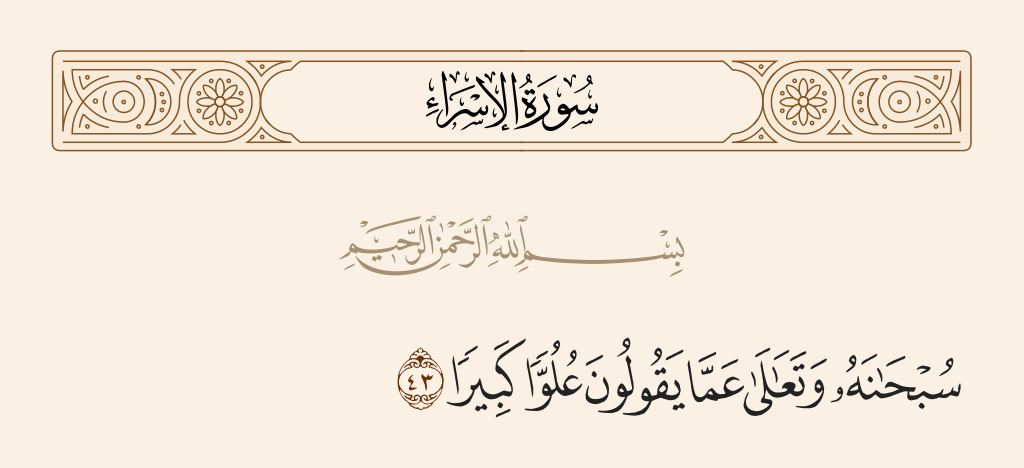 سُورَةُ الإِسْرَاءِ
بِسْمِ ٱللَّهِ ٱلرَّحْمَٰنِ ٱلرَّحِيمِ
سُبْحَٰنَهُۥ وَتَعَٰلَىٰ عَمَّا يَقُولُونَ عُلُوًّا كَبِيرًا ٤٣